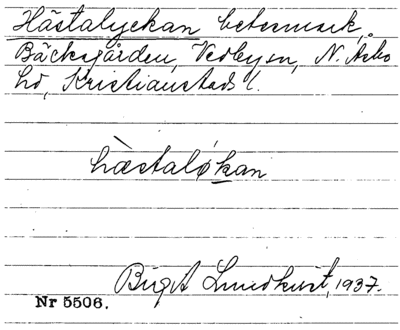 Hästalyckan betesmark.
Bäcksgården, Vedby sn, N. Åsbo
hd, Kristianstads l.
hæ̀staløkan
Birgit Lundkvist, 1937.
Nr 5506.